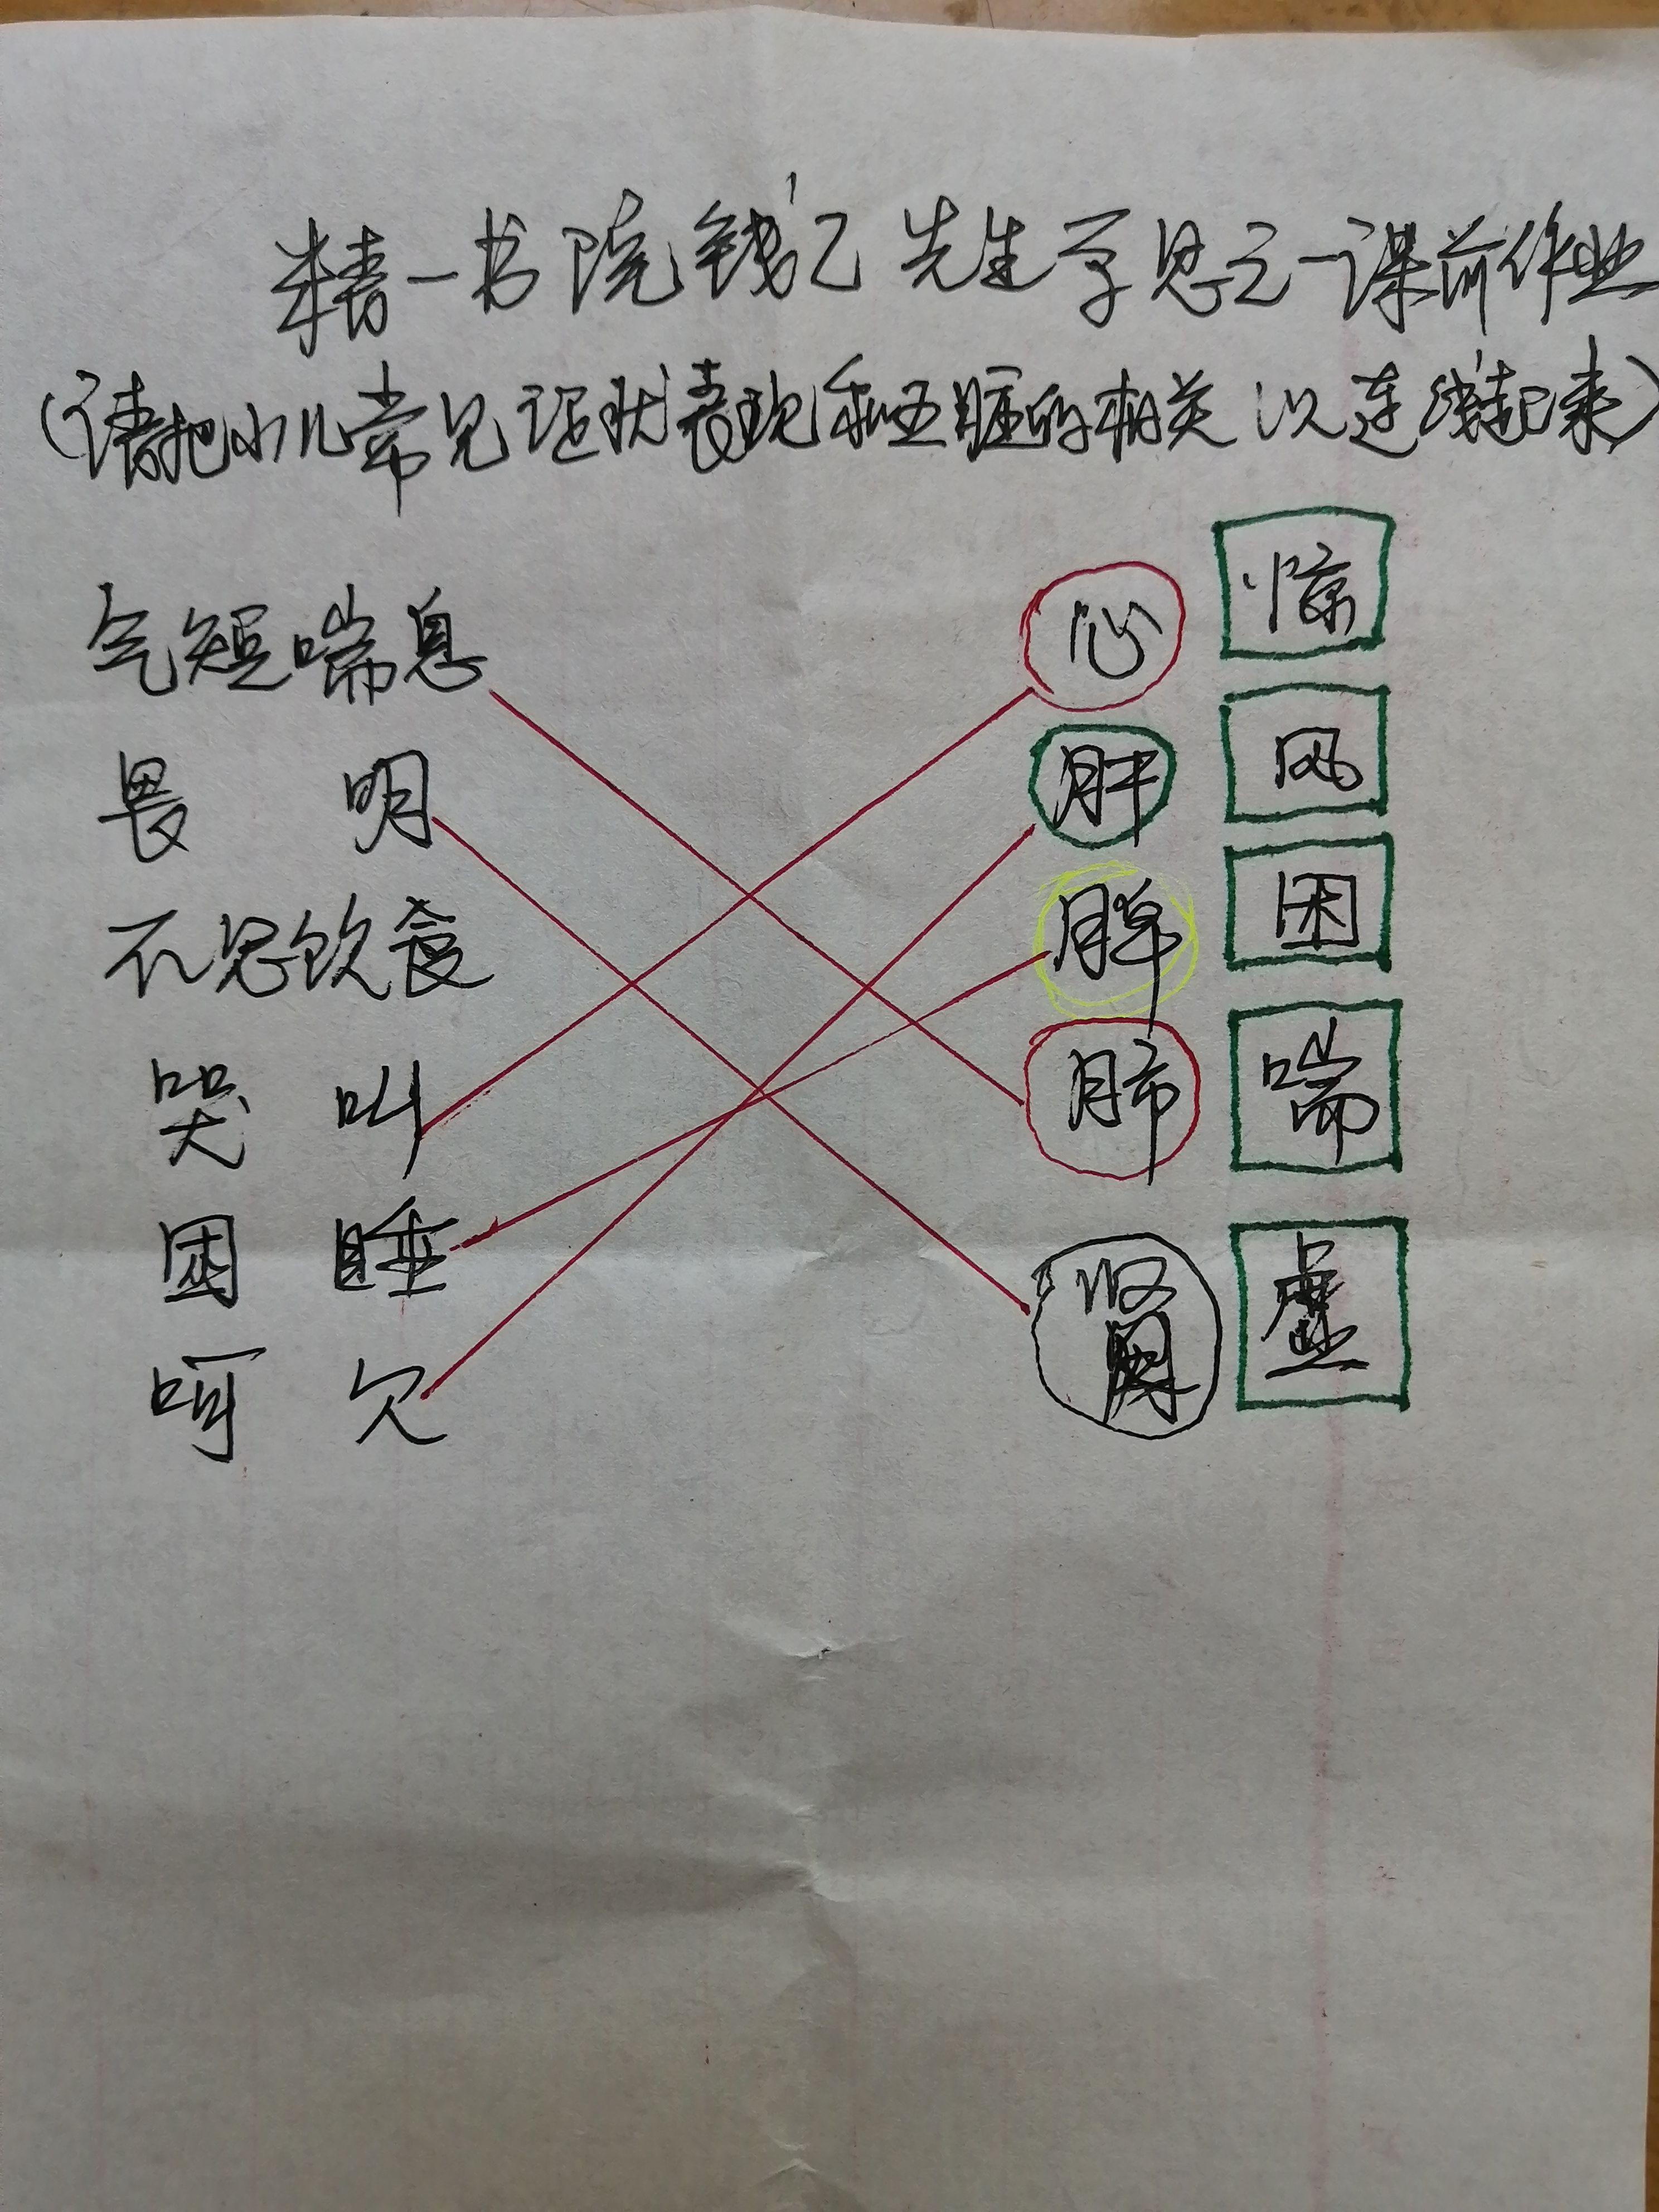 精一书院钱乙先生学思之一课前作业
（请把小儿常见证状表现和五脏的相关以连线起来）
气短喘息 心 惊
畏明 肝 风
不思饮食 脾 困
哭叫 肺 喘
困睡 肾 虚
呵欠